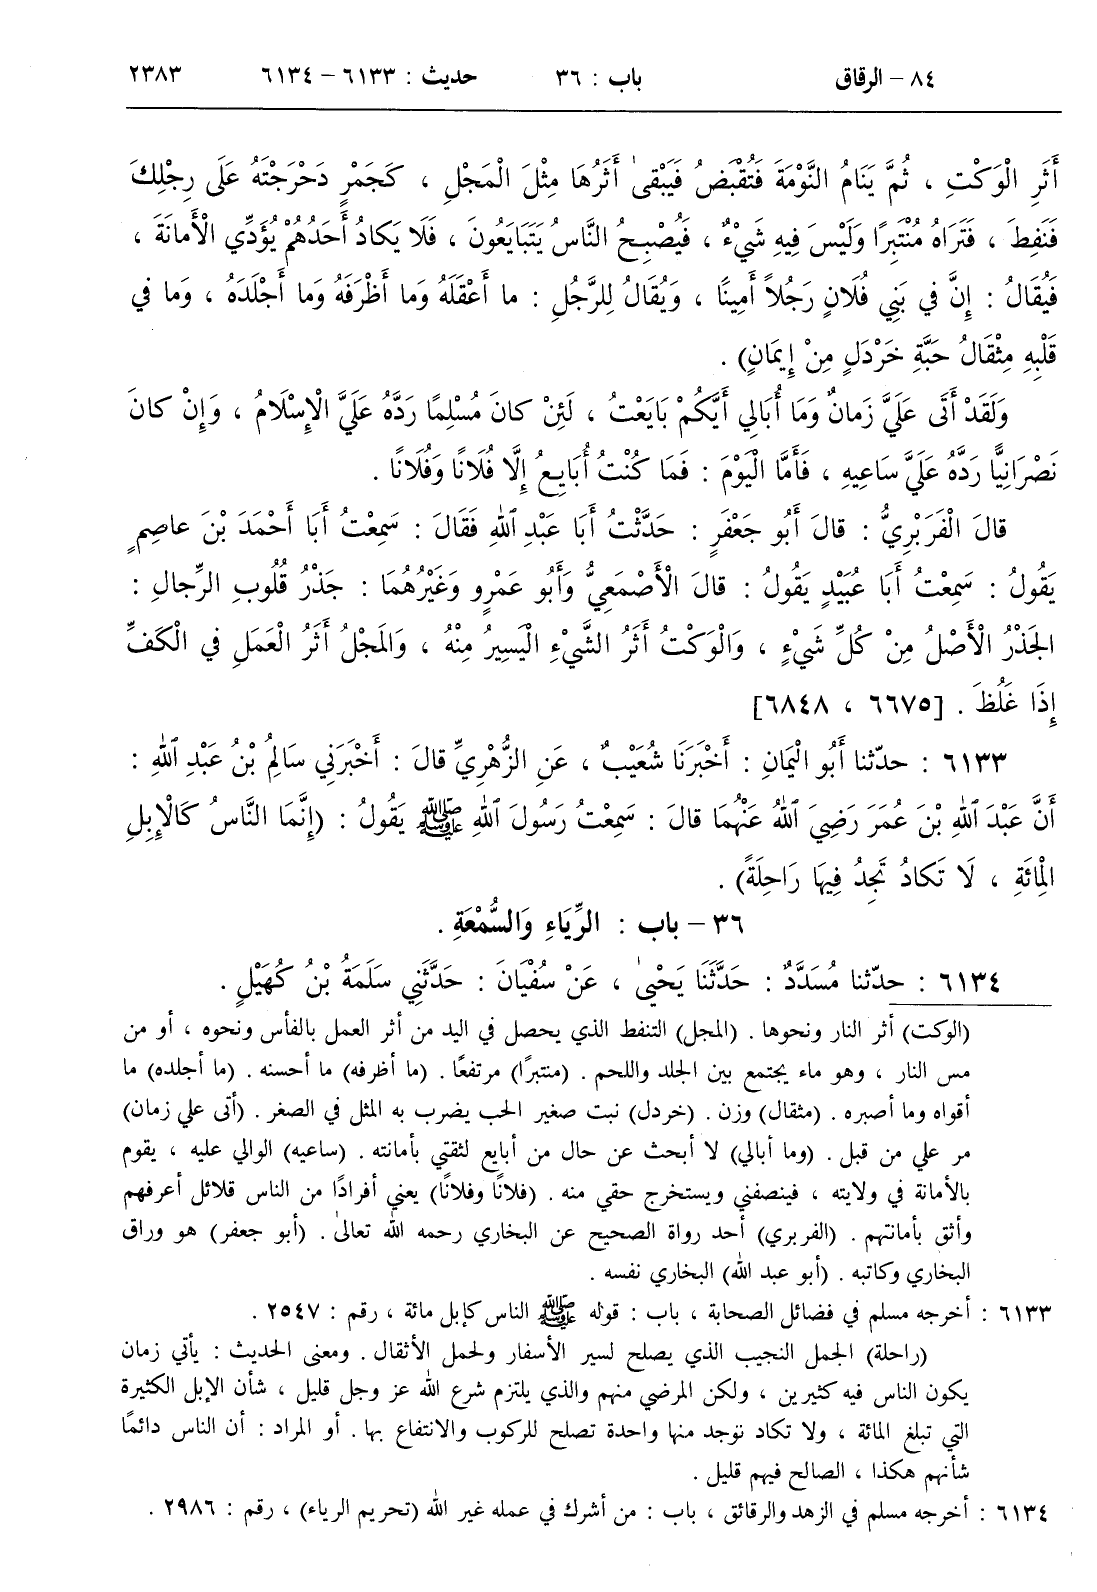 ٨٤ – الرقاق باب : ٣٦ حديث : ٦١٣٣ – ٦١٣٤ ٢٣٨٣
أَثَرِ الْوَكْتِ ، ثُمَّ يَنَامُ النَّوْمَةَ فَتُقْبَضُ فَيَبْقَىٰ أَثَرُهَا مِثْلَ الْمَجْلِ ، كَجَمْرٍ دَحْرَجْتَهُ عَلَى رِجْلِكَ
فَنَفِطَ ، فَتَرَاهُ مُنْتَبِرًا وَلَيْسَ فِيهِ شَيْءٌ ، فَيُصْبِحُ النَّاسُ يَتَبَايَعُونَ ، فَلَا يَكادُ أَحَدُهُمْ يُؤَدِّي الْأَمانَةَ ،
فَيُقَالُ : إِنَّ في بَنِي فُلَانٍ رَجُلاً أَمِينًا ، وَيُقَالُ لِلرَّجُلِ : ما أَعْقَلَهُ وَما أَظْرَفَهُ وَما أَجْلَدَهُ ، وَما في
قَلْبِهِ مِثْقَالُ حَبَّةِ خَرْدَلٍ مِنْ إِيمَانٍ) .
وَلَقَدْ أَتَى عَلَيَّ زَمانٌ وَمَا أُبَالِي أَيَّكُمْ بَايَعْتُ ، لَئِنْ كانَ مُسْلِمًا رَدَّهُ عَلَيَّ الْإِسْلَامُ ، وَإِنْ كانَ
نَصْرَانِيًّا رَدَّهُ عَلَيَّ سَاعِيهِ ، فَأَمَّا الْيَوْمَ : فَمَا كُنْتُ أُبَايِعُ إِلَّا فُلَانًا وَفُلَانًا .
قالَ الْفَرَبْرِيُّ : قالَ أَبُو جَعْفَرٍ : حَدَّثْتُ أَبَا عَبْدِ ٱللهِ فَقَالَ : سَمِعْتُ أَبَا أَحْمَدَ بْنَ عاصِمٍ
يَقُولُ : سَمِعْتُ أَبَا عُبَيْدٍ يَقُولُ : قالَ الْأَصْمَعِيُّ وَأَبُو عَمْرٍو وَغَيْرُهُمَا : جَذْرُ قُلُوبِ الرِّجالِ :
الجَذْرُ الْأَصْلُ مِنْ كُلِّ شَيْءٍ ، وَالْوَكْتُ أَثَرُ الشَّيْءِ الْيَسِيرُ مِنْهُ ، وَالمَجْلُ أَثَرُ الْعَمَلِ في الْكَفِّ
إِذَا غَلُظَ . [٦٦٧٥ ، ٦٨٤٨]
٦١٣٣ : حدّثنا أَبُو الْيَمَانِ : أَخْبَرَنَا شُعَيْبٌ ، عَنِ الزُّهْرِيِّ قالَ : أَخْبَرَنِي سَالِمُ بْنُ عَبْدِ ٱللهِ :
أَنَّ عَبْدَ ٱللهِ بْنَ عُمَرَ رَضِيَ ٱللهُ عَنْهُمَا قالَ : سَمِعْتُ رَسُولَ ٱللهِ ﷺ يَقُولُ : (إِنَّمَا النَّاسُ كَالْإِبِلِ
الْمِائَةِ ، لَا تَكادُ تَجِدُ فِيهَا رَاحِلَةً) .
٣٦ – باب : الرِّيَاءِ وَالسُّمْعَةِ .
٦١٣٤ : حدّثنا مُسَدَّدٌ : حَدَّثَنَا يَحْيىٰ ، عَنْ سُفْيَانَ : حَدَّثَنِي سَلَمَةُ بْنُ كُهَيْلٍ .
(الوكت) أثر النار ونحوها . (المجل) التنفط الذي يحصل في اليد من أثر العمل بالفأس ونحوه ، أو من
مس النار ، وهو ماء يجتمع بين الجلد واللحم . (منتبرًا) مرتفعًا . (ما أظرفه) ما أحسنه . (ما أجلده) ما
أقواه وما أصبره . (مثقال) وزن . (خردل) نبت صغير الحب يضرب به المثل في الصغر . (أتى علي زمان)
مر علي من قبل . (وما أبالي) لا أبحث عن حال من أبايع لثقتي بأمانته . (ساعيه) الوالي عليه ، يقوم
بالأمانة في ولايته ، فينصفني ويستخرج حقي منه . (فلانًا وفلانًا) يعني أفرادًا من الناس قلائل أعرفهم
وأثق بأمانتهم . (الفربري) أحد رواة الصحيح عن البخاري رحمه الله تعالى . (أبو جعفر) هو وراق
البخاري وكاتبه . (أبو عبد الله) البخاري نفسه .
٦١٣٣ : أخرجه مسلم في فضائل الصحابة ، باب : قوله ﷺ الناس كإبل مائة ، رقم : ٢٥٤٧ .
(راحلة) الجمل النجيب الذي يصلح لسير الأسفار ولحمل الأثقال . ومعنى الحديث : يأتي زمان
يكون الناس فيه كثيرين ، ولكن المرضي منهم والذي يلتزم شرع الله عز وجل قليل ، شأن الإبل الكثيرة
التي تبلغ المائة ، ولا تكاد توجد منها واحدة تصلح للركوب والانتفاع بها . أو المراد : أن الناس دائمًا
شأنهم هكذا ، الصالح فيهم قليل .
٦١٣٤ : أخرجه مسلم في الزهد والرقائق ، باب : من أشرك في عمله غير الله (تحريم الرياء) ، رقم : ٢٩٨٦ .